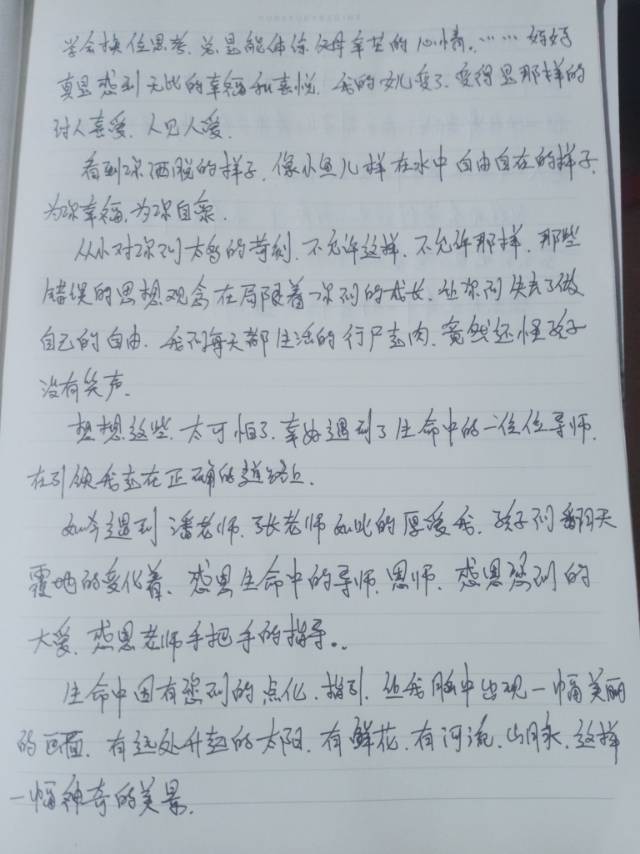 学会换位思考、总是能体你父母辛苦的心情。……妈妈
真是感到无比的幸福和喜悦。我的女儿变了、变得是那样的
讨人喜爱、人见人爱、
看到你洒脱的样子、像小鱼儿样在水中自由自在的样子、
为你幸福、为你自豪、
从小对你们太多的苛刻、不允许这样、不允许那样、那些
错误的思想观念在局限着你们的成长、让你们失去了做
自己的自由、我们每天都生活的行尸走肉、竟然还怪孩子
没有笑声、
想想这些、太可怕了、幸好遇到了生命中的一位位导师、
在引领我走在正确的道路上、
如今遇到潘老师、张老师如此的厚爱我、孩子们翻天
覆地的变化着、感恩生命中的导师、恩师、感恩您们的
大爱、感恩老师手把手的指导。。
生命中因有您们的点化、指引、让我脑中出现一幅美丽
的画面、有远处升起的太阳、有鲜花、有河流、山脉、这样
一幅神奇的美景、